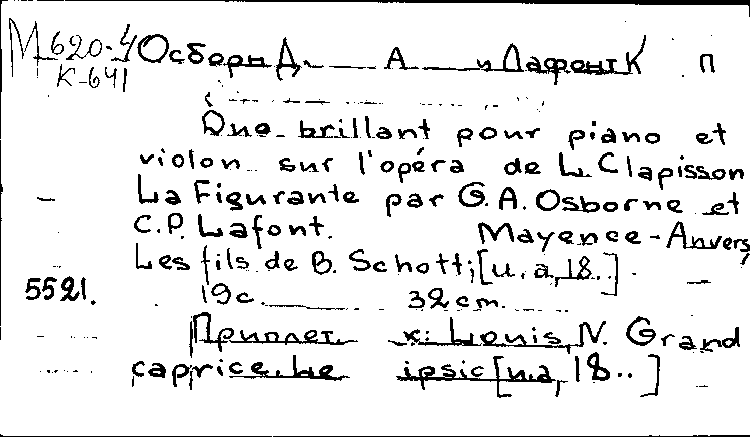 М620-4 Осборн Д. А и Лафонт К П
К-641
Duo brillant pour piano et
violon sur l'opéra de L. Clapisson
La Figurante par G.A. Osborne et
C.P. Lafont. Mayence-Anvers,
Les fils de B. Schott; [u.a, 18..].
5521. 19c. 32cm.
Приплет. к: Louis, N. Grand
caprice. Leipsic [u.a, 18..]